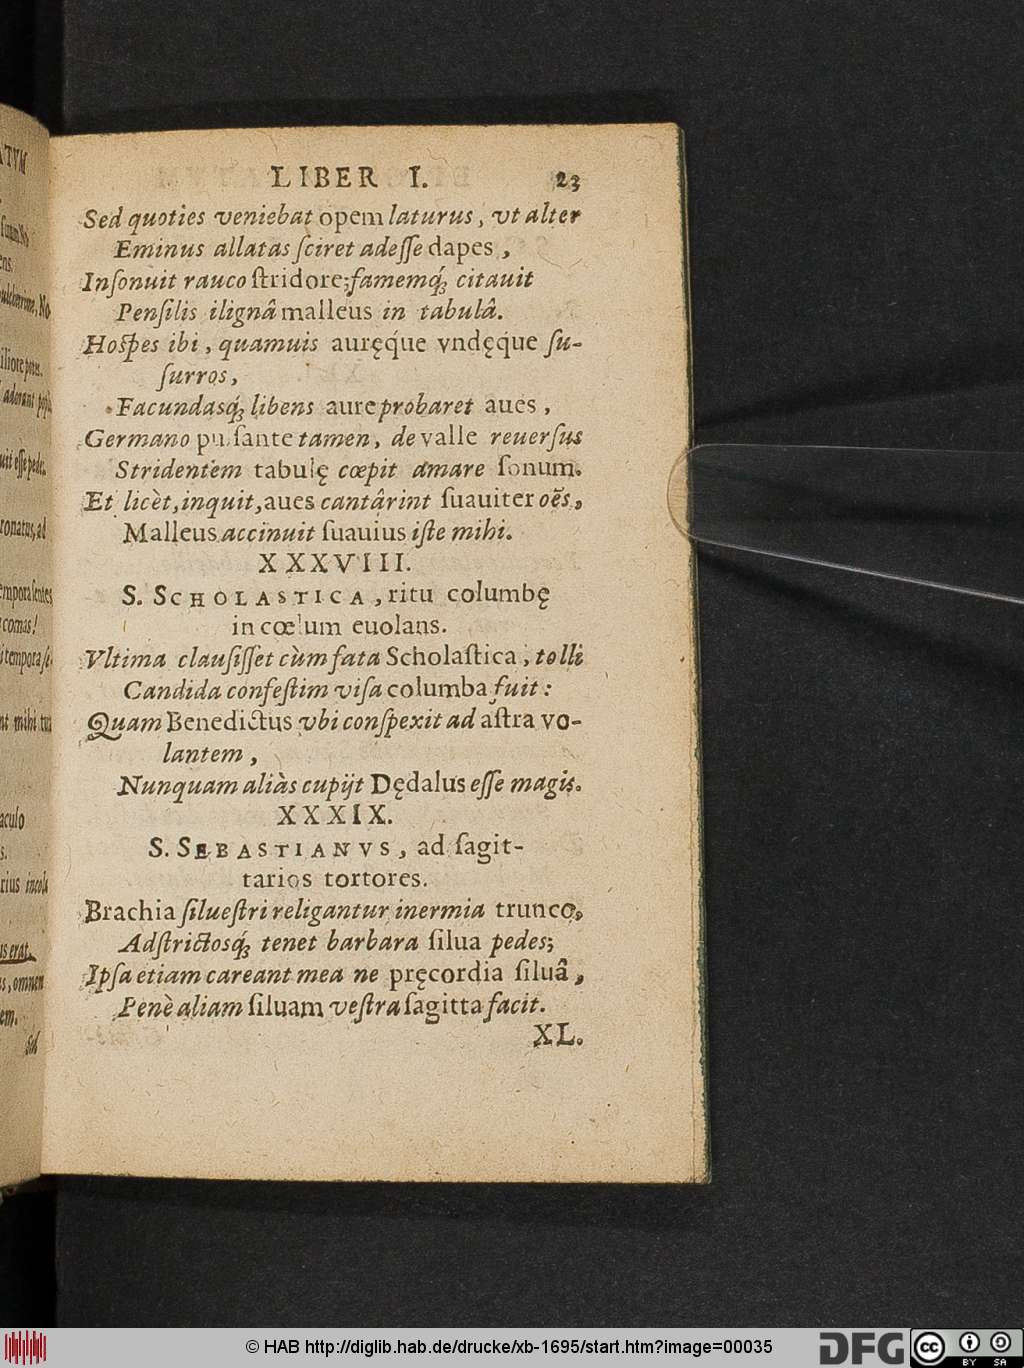 LIBER I. 23
Sed quoties veniebat opem laturus, vt alter
Eminus allatas ſciret adeſſe dapes,
Inſonuit rauco ſtridore; famemq́ꝫ citauit
Penſilis ilignâ malleus in tabulâ.
Hoſpes ibi, quamuis auręq́ue vndęque ſu-
ſurros,
Facundasq́ꝫ libens aure probaret aues,
Germano pulſante tamen, de valle reuerſus
Stridentem tabulę cœpit amare ſonum.
Et licèt, inquit, aues cantârint ſuauiter oẽs,
Malleus accinuit ſuauius iſte mihi.
XXXVIII.
S. SCHOLASTICA, ritu columbę
in cœlum euolans.
Vltima clauſiſſet cùm fata Scholaſtica, tolli
Candida confeſtim viſa columba fuit:
Quam Benedictus vbi conſpexit ad aſtra vo-
lantem,
Nunquam aliàs cupijt Dędalus eſſe magis.
XXXIX.
S. SEBASTIANVS, ad ſagit-
tarios tortores.
Brachia ſilueſtri religantur inermia trunco,
Adſtrictosq́ꝫ tenet barbara ſilua pedes;
Ipſa etiam careant mea ne pręcordia ſiluâ,
Penè aliam ſiluam veſtra ſagitta facit.
XL.
© HAB http://diglib.hab.de/drucke/xb-1695/start.htm?image=00035
DFG
cc BY SA